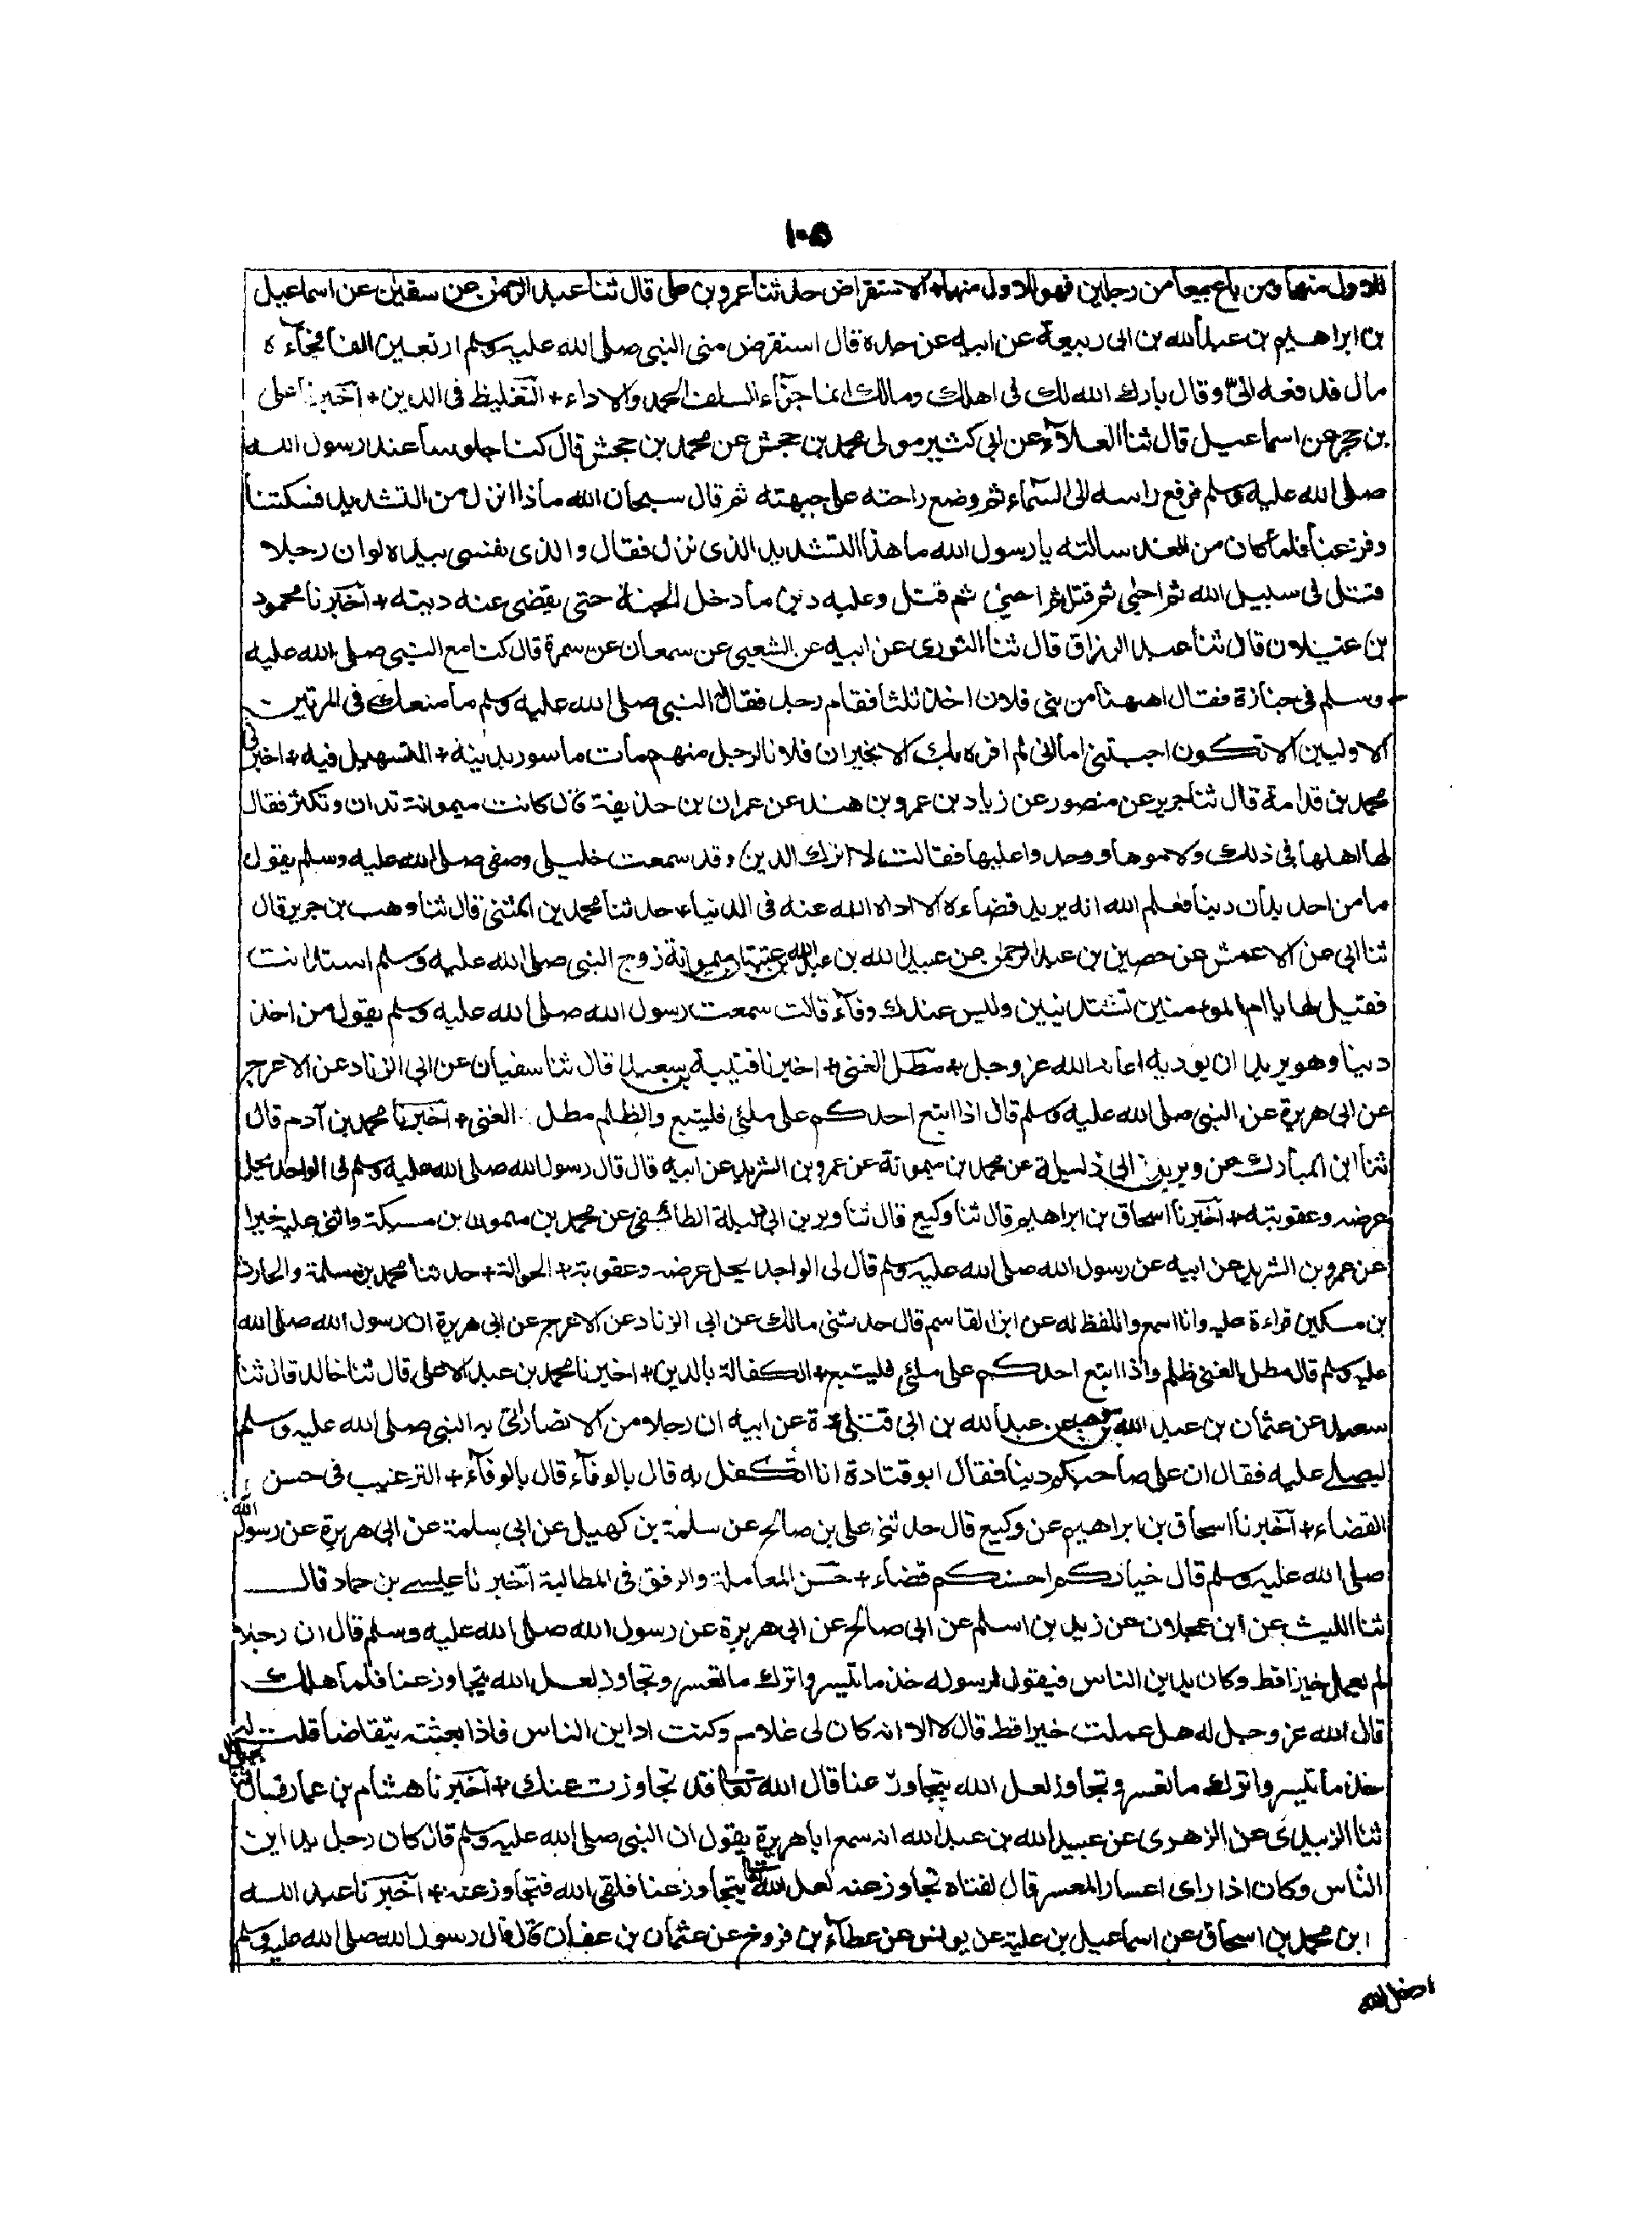 ١٠٥
للاول منهما ومن باع بيعا من رجلين فهو للاول منهما + الاستقراض حدثنا عمرو بن علي قال ثنا عبد الرحمن عن سفين عن اسماعيل
بن ابراهيم بن عبد الله بن ابى ربيعة عن ابيه عن جده قال استقرض منى النبى صلى الله عليه وسلم اربعين الفا فجآءه
مال فدفعه الىّ وقال بارك الله لك فى اهلك ومالك انما جزآء السلف الحمد والاداء + التغليظ فى الدين + اخبرنا على
بن حجر عن اسماعيل قال ثنا العلآء عن ابى كثير مولى محمد بن جحش عن محمد بن جحش قال كنا جلوسا عند رسول الله
صلى الله عليه وسلم فرفع راسه الى السمآء ثم وضع راحته على جبهته ثم قال سبحان الله ماذا انزل من التشديد فسكتنا
وفزعنا فلما كان من الغد سالته يا رسول الله ما هذا التشديد الذى نزل فقال والذى نفسى بيده لو ان رجلا
قتل فى سبيل الله ثم احيى ثم قتل ثم احيى ثم قتل وعليه دين ما دخل الجنة حتى يقضى عنه دينه + اخبرنا محمود
بن غيلان قال ثنا عبد الرزاق قال ثنا الثورى عن ابيه عن الشعبى عن سمعان عن سمرة قال كنا مع النبى صلى الله عليه
وسلم فى جنازة فقال اههنا من بنى فلان احد ثلثا فقام رجل فقال له النبى صلى الله عليه وسلم ما منعك فى المرتين
الاوليين الا تكون اجبتنى اما انى لم انوه بك الا بخير ان فلانا لرجل منهم مات ماسور بدينه + التسهيل فيه + اخبرنى
محمد بن قدامة قال ثنا جرير عن منصور عن زياد بن عمرو بن هند عن عمران بن حذيفة قال كانت ميمونة تدان وتكثر فقال
لها اهلها فى ذلك ولاموها ووجدوا عليها فقالت لا اترك الدين وقد سمعت خليلى وصفى صلى الله عليه وسلم يقول
ما من احد يدان دينا فعلم الله انه يريد قضاءه الا اداه الله عنه فى الدنيا + حدثنا محمد بن المثنى قال ثنا وهب بن جرير قال
ثنا ابى عن الاعمش عن حصين بن عبد الرحمن عن عبيد الله بن عبد الله بن عتبة ان ميمونة زوج النبى صلى الله عليه وسلم استدانت
فقيل لها يا ام المومنين تستدينين وليس عندك وفآء قالت سمعت رسول الله صلى الله عليه وسلم يقول من اخذ
دينا وهو يريد ان يوديه اعانه الله عز وجل + مطل الغنى + اخبرنا قتيبة بن سعيد قال ثنا سفيان عن ابى الزناد عن الاعرج
عن ابى هريرة عن النبى صلى الله عليه وسلم قال اذا اتبع احدكم على ملئى فليتبع والظلم مطل الغنى + اخبرنا محمد بن آدم قال
ثنا ابن المبارك عن وبر بن ابى دليلة عن محمد بن ميمونة عن عمرو بن الشريد عن ابيه قال قال رسول الله صلى الله عليه وسلم لى الواجد يحل
عرضه وعقوبته + اخبرنا اسحاق بن ابراهيم قال ثنا وكيع قال ثنا وبر بن ابى دليلة الطائفى عن محمد بن ميمون بن مسيكة واثنى عليه خيرا
عن عمرو بن الشريد عن ابيه عن رسول الله صلى الله عليه وسلم قال لى الواجد يحل عرضه وعقوبته + الحوالة + حدثنا محمد بن مسلمة والحارث
بن مسكين قراءة عليه وانا اسمع واللفظ له عن ابن القاسم قال حدثنى مالك عن ابى الزناد عن الاعرج عن ابى هريرة ان رسول الله صلى الله
عليه وسلم قال مطل الغنى ظلم واذا اتبع احدكم على ملئى فليتبع + الكفالة بالدين + اخبرنا محمد بن عبد الاعلى قال ثنا خالد قال ثنا
سعيد عن عثمان بن عبد الله بن موهب عن عبد الله بن ابى قتادة عن ابيه ان رجلا من الانصار اتى به النبى صلى الله عليه وسلم
ليصلى عليه فقال ان على صاحبكم دينا فقال ابو قتادة انا اتكفل به قال بالوفآء قال بالوفآء + الترغيب فى حسن
القضاء + اخبرنا اسحاق بن ابراهيم عن وكيع قال حدثنى على بن صالح عن سلمة بن كهيل عن ابى سلمة عن ابى هريرة عن رسول الله
صلى الله عليه وسلم قال خياركم احسنكم قضاء + حسن المعاملة والرفق فى المطالبة اخبرنا عيسى بن حماد قال
ثنا الليث عن ابن عجلان عن زيد بن اسلم عن ابى صالح عن ابى هريرة عن رسول الله صلى الله عليه وسلم قال ان رجلا
لم يعمل خيرا قط وكان يداين الناس فيقول لرسوله خذ ما تيسر واترك ما تعسر وتجاوز لعل الله يتجاوز عنا فلما هلك
قال الله عز وجل له هل عملت خيرا قط قال لا الا انه كان لى غلام وكنت اداين الناس فاذا بعثته يتقاضا قلت له
خذ ما تيسر واترك ما تعسر وتجاوز لعل الله يتجاوز عنا قال الله تعا فقد تجاوزت عنك + اخبرنا هشام بن عمار قال
ثنا الزبيدى عن الزهرى عن عبيد الله بن عبد الله انه سمع ابا هريرة يقول ان النبى صلى الله عليه وسلم قال كان رجل يداين
الناس وكان اذا راى اعسار المعسر قال لفتاه تجاوز عنه لعل الله تعا يتجاوز عنا فلقى الله فتجاوز عنه + اخبرنا عبد الله
ابن محمد بن اسحاق عن اسماعيل بن علية عن يونس عن عطآء بن فروخ عن عثمان بن عفان قال قال رسول الله صلى الله عليه وسلم
ادخل الله